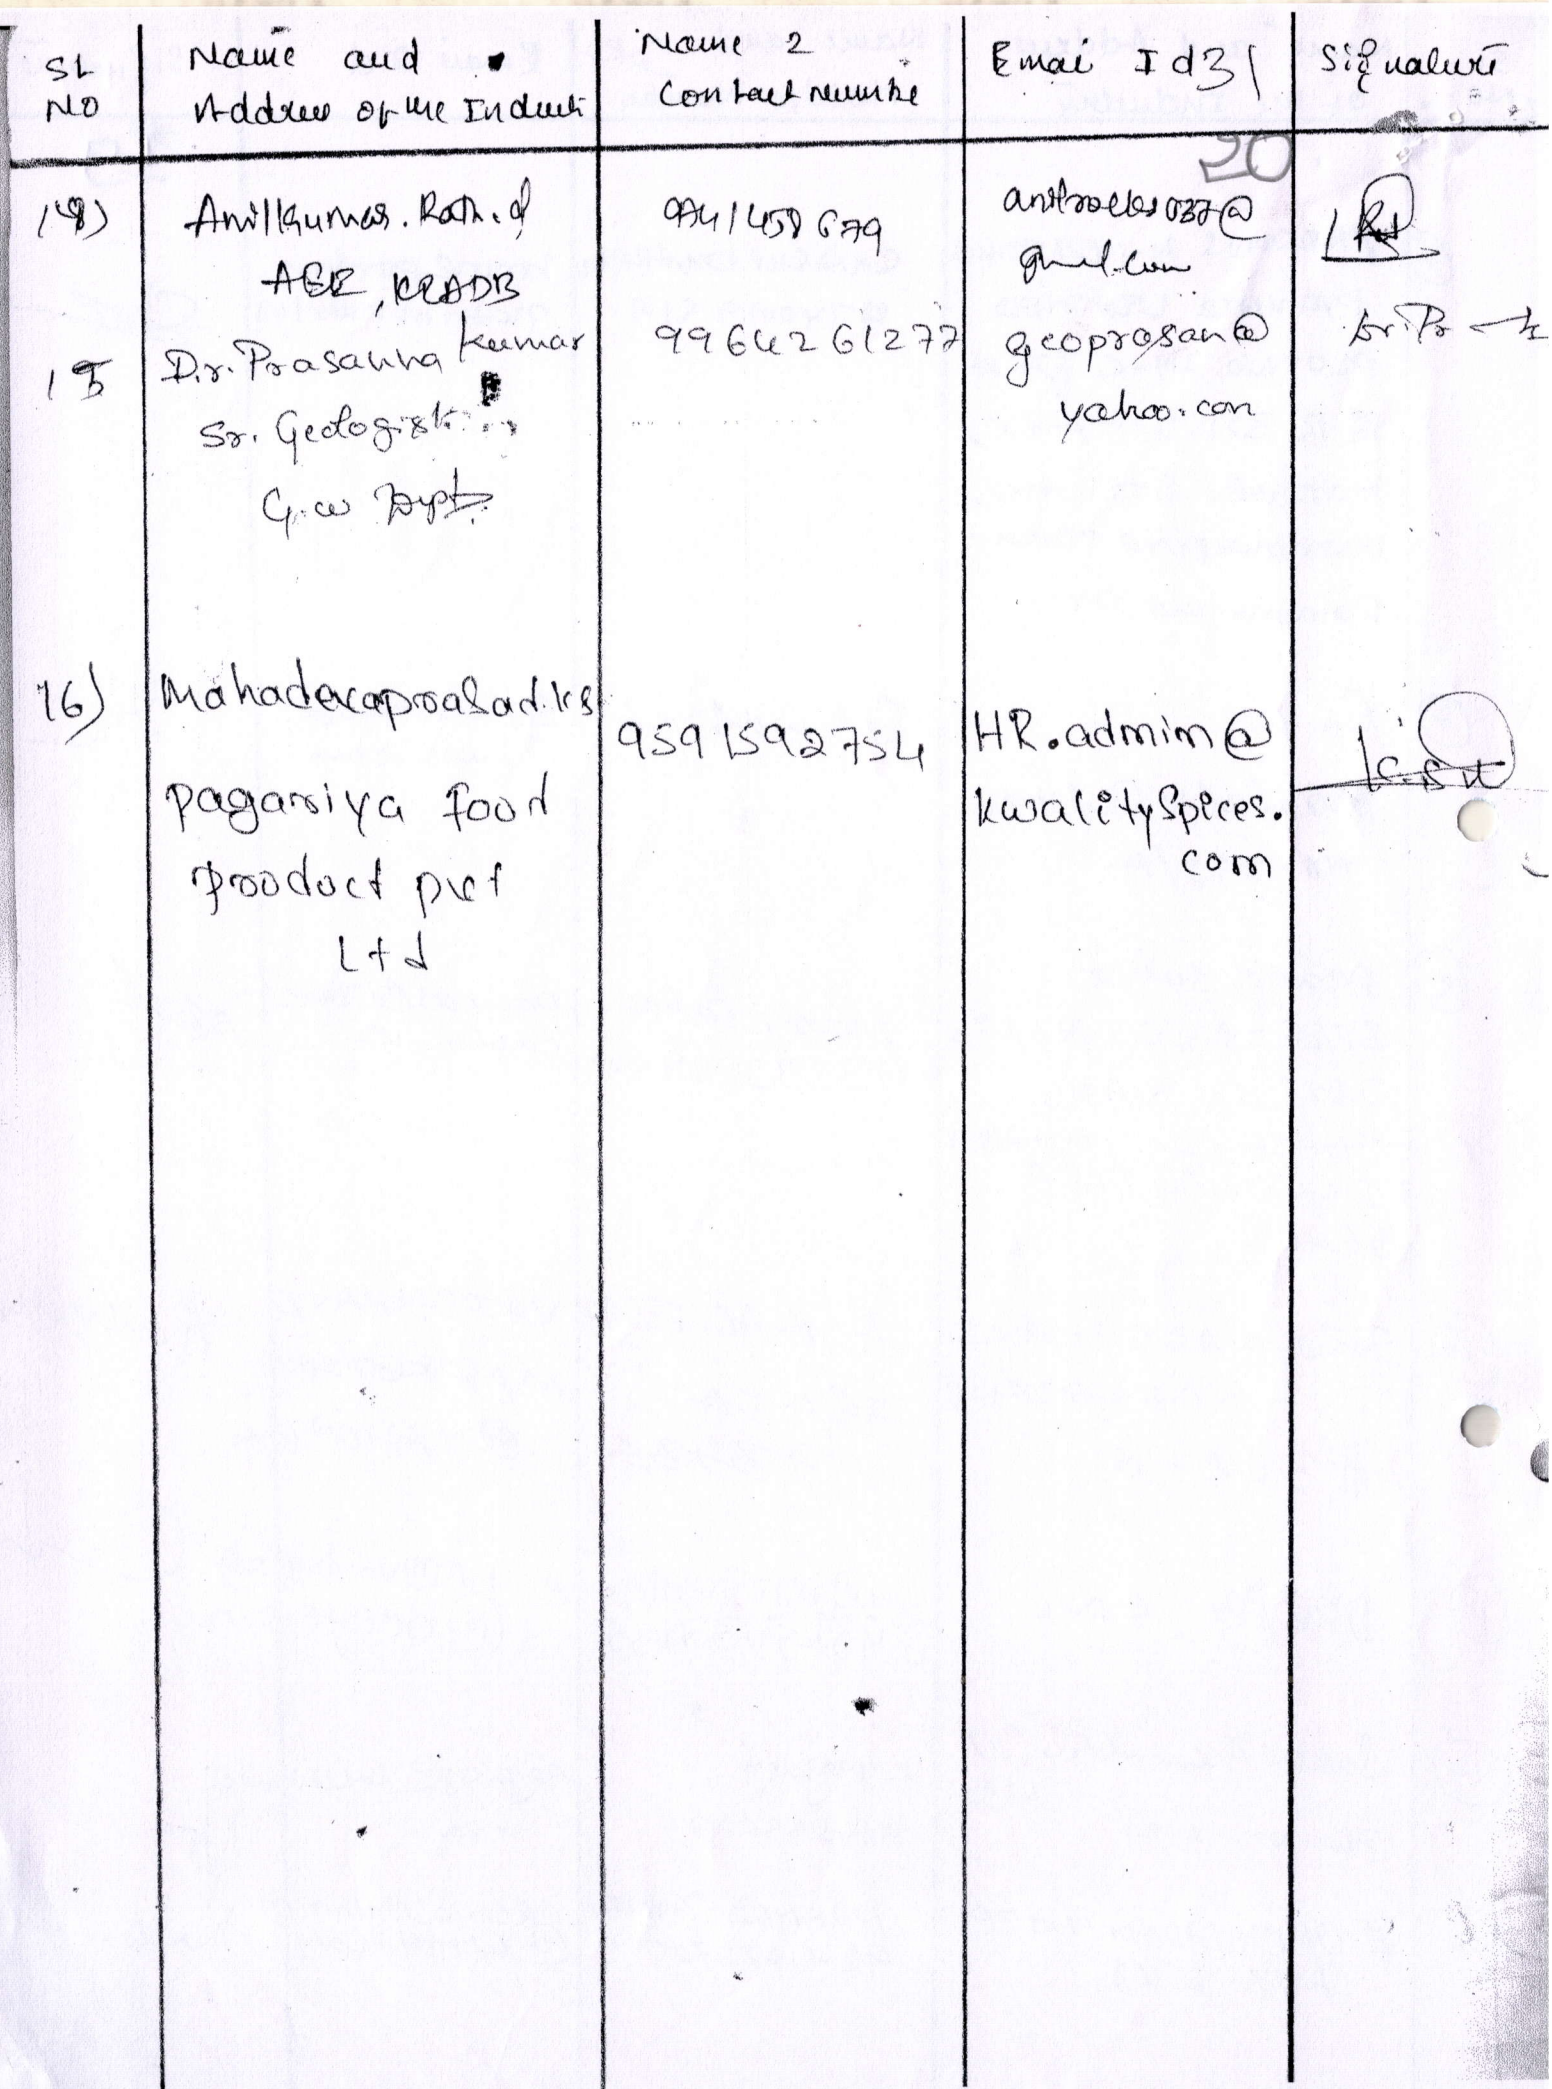 SL NO
Name and
Address of the Industi
Name 2
Contact Numbe
Email Id 31
Signature
20
14)
Anilkumar. Rath.d
AEE, KIADB
9741458679
@
15
Dr. Prasanna Kumar
Sr. Geologist
G.w Dept.
9964261277
geoprasan@
yahoo.com
16)
Mahadevaprasad. K S
pagariya food
product pvt
Ltd
9591592754
HR.admin@
kwalitySpices.
com
K.S.M